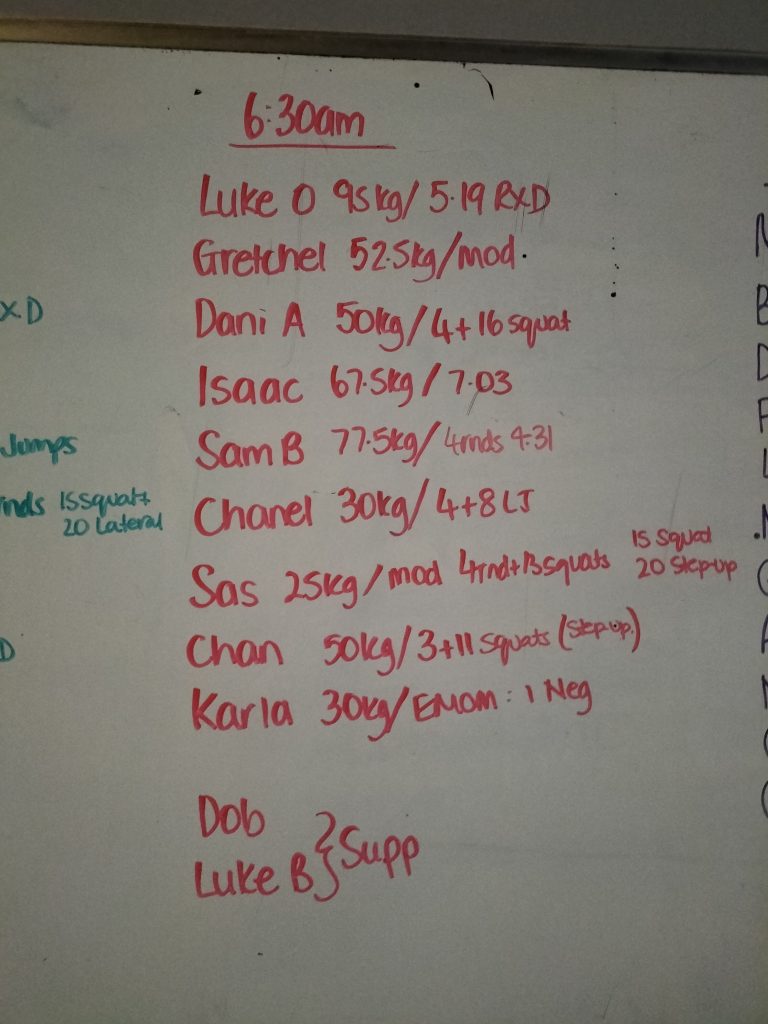 6:30am
Luke O 95kg/ 5.19 RXD
Gretchel 52.5kg/mod.
XD
Dani A 50kg/4+16 squat
Isaac 67.5kg/7.03
Jumps
Sam B 77.5kg/4rnds 4:31
rnds 15 squat+
20 Lateral
Chanel 30kg/4+8 LJ
Sas 25kg/mod 4rnd+13squats 15 Squat
20 Step-up
D
Chan 50kg/3+11 squats (Step up.)
Karla 30kg/EMOM: 1 Neg
Dob
Luke B } Supp